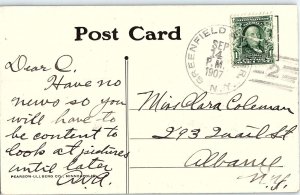 Post Card
GREENFIELD
SEP
14
P.M.
1907
N.Y.
2
Dear C.
Have no
news so you
will have to
be content to
look at pictures
until later
Miss Clara Coleman
293 Quail St
Albany
N.Y.
PEARSON-ULLBERG CO., MINNEAPOLIS